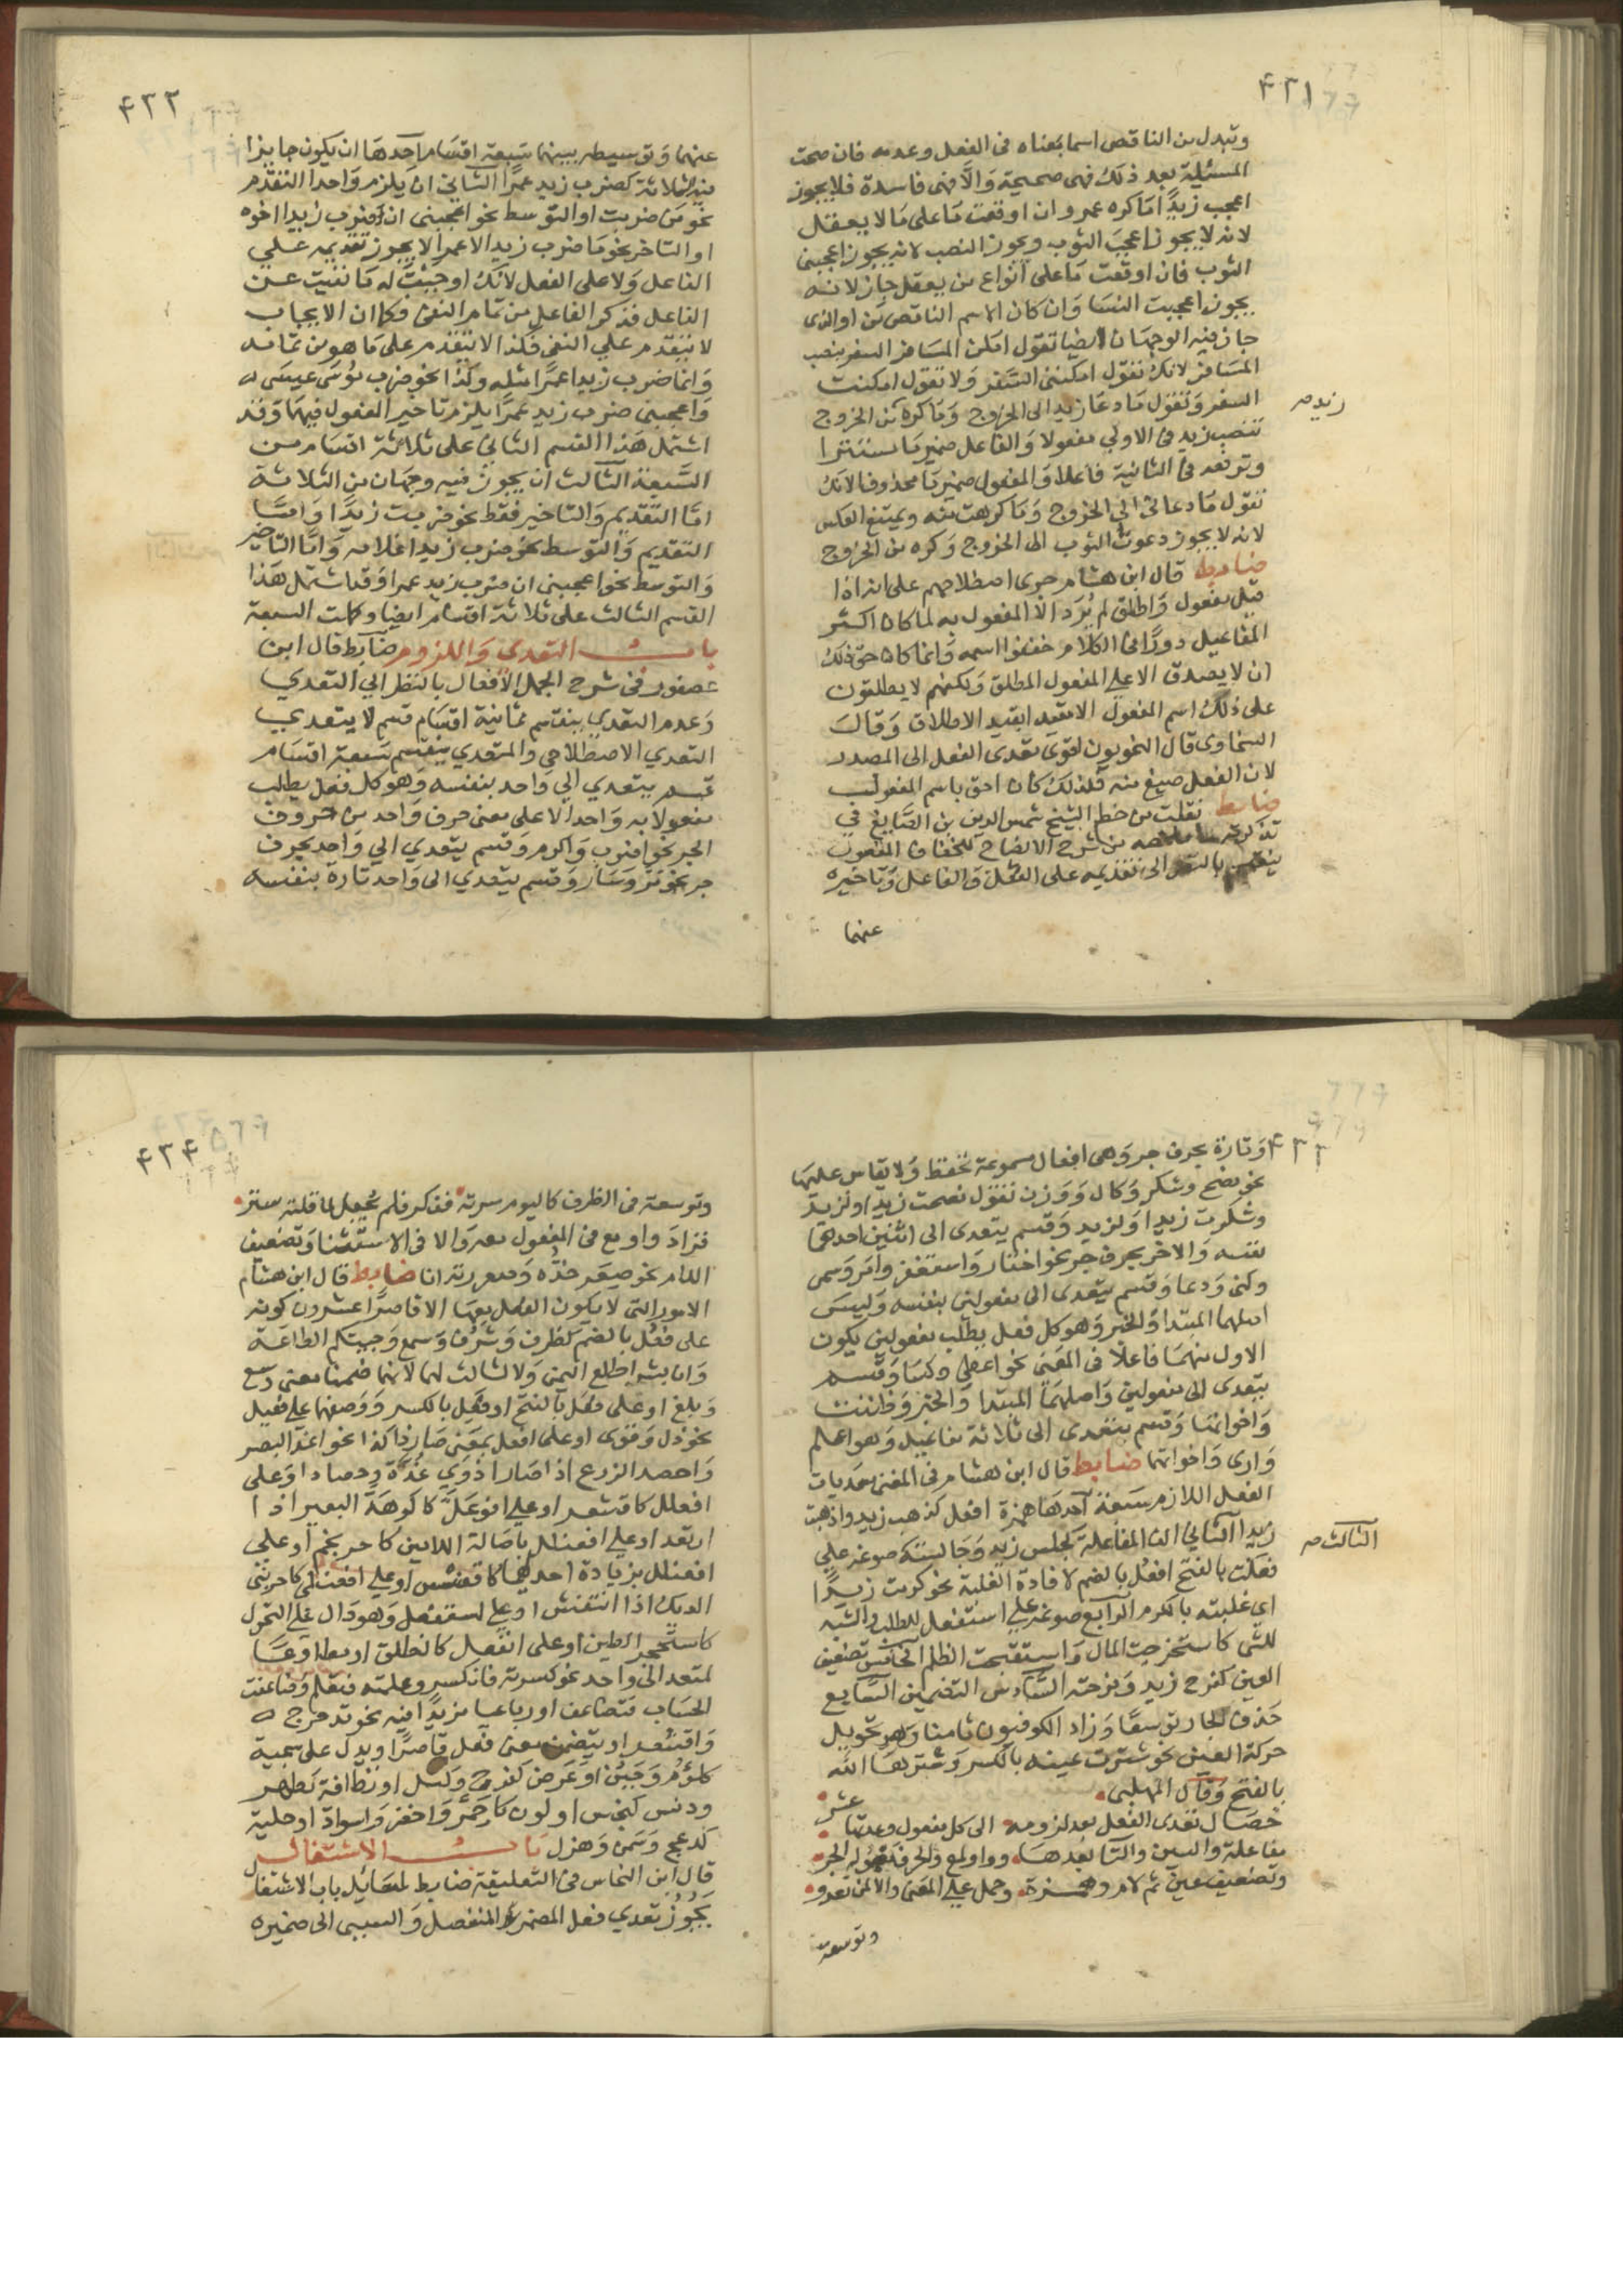 ٤٣١
وتبدل من الناقص اسما بمعناه في الفعل وعدمه فان صحت
المسئلة بعد ذلك فهي صحيحة والا فهي فاسدة فلا يجوز
اعجب زيدًا ما كره عمرو ان اوقعت ما على ما لا يعقل
لانه لا يجوز اعجبَ الثوب ويجوز النصب لانه يجوز اعجبني
الثوب فان اوقعت ما على انواع من يعقل جاز لانه
يجوز اعجبت النسا وان كان الاسم الناقص من او الذى
جاز فيه الوجهان ايضا تقول امكن المسافر السفر بنصب
المسافر لانك تقول امكنني السفر ولا تقول امكنت
السفر وتقول ما دعا زيدا الى الخروج وما كره من الخروج
زيد صح
تنصب زيد في الاولي مفعولا والفاعل ضمير ما مستترا
وترفعه في الثانية فاعلا والمفعول ضمير ما محذوفا لانك
تقول ما دعاني الي الخروج وما كرهت منه ويمتنع العكس
لانه لا يجوز دعوت الثوب الى الخروج وكره من الخروج
ضابط قال ابن هشام جرى اصطلاحهم على انه اذا
قيل مفعول واطلق لم يُرَد الا المفعول به لما كان اكثر
المفاعيل دورًا في الكلام خففوا اسمه وانما كان حق ذلك
ان لا يصدق الا على المفعول المطلق ولكنهم لا يطلقون
على ذلك اسم المفعول الا مقيدا بقيد الاطلاق وقال
السخاوى قال النحويون اقوى تعدى الفعل الى المصدر
لان الفعل صيغ منه فلذلك كان احق باسم المفعول
ضابط نقلت من خط الشيخ شمس الدين بن الصايغ في
تذكرته من شرح الايضاح للخفاف المفعول
ينقسم بالنظر الى تقديمه على الفعل والفاعل وتاخيره
عنهما
٤٣٢
عنهما وتوسيطه بينهما سبعة اقسام احدها ان يكون جايزا
فيه الثلاثة كضرب زيد عمرًا الثاني ان يلزم واحدا التقدم
نحو من ضربت او التوسط نحو اعجبني ان ضرب زيدا اخوه
او التاخر نحو ما ضرب زيد الا عمرا لا يجوز تقديمه علي
الفاعل ولا على الفعل لانك اوجبت له ما نفيت عن
الفاعل فذكر الفاعل من تمام النفي فكما ان الايجاب
لا يتقدم علي النفي فكذا لا يتقدم على ما هو من تمامه
وانما ضرب زيدا عمرًا مثله وكذا نحو ضرب موسى عيسى
واعجبني ضرب زيد عمرًا يلزم تاخير المفعول فيهما وقد
اشتمل هذا القسم الثاني على ثلاثة اقسام من
السبعة الثالث ان يجوز فيه وجهان من الثلاثة
اما التقديم والتاخير فقط نحو ضربت زيدًا واما
التقديم والتوسط نحو ضرب زيدا غلامه واما التاخير
والتوسط نحو اعجبني ان ضرب زيد عمرا وقد اشتمل هذا
القسم الثالث على ثلاثة اقسام ايضا وكملت السبعة
باب التعدى واللزوم ضابط قال ابن
عصفور في شرح الجمل الافعال بالنظر الي التعدي
وعدم التعدي ينقسم ثمانية اقسام قسم لا يتعدي
التعدي الاصطلاحي والمتعدي ينقسم سبعة اقسام
قسم يتعدي الي واحد بنفسه وهو كل فعل يطلب
مفعولا به واحدا لا على معنى حرف واحد من حروف
الجر نحو ضرب واكرم وقسم يتعدي الي واحد بحرف
جر نحو مر وسار وقسم يتعدي الى واحد تارة بنفسه
٤٣٣
وتارة بحرف جر وهي افعال مسموعة تحفظ ولا يقاس عليها
نحو نصح وشكر وكال ووزن تقول نصحت زيدا ولزيد
وشكرت زيدا ولزيد وقسم يتعدى الى اثنين احدهما
بنفسه والاخر بحرف جر نحو اختار واستغفر وامر وسمى
وكنى ودعا وقسم يتعدى الى مفعولين بنفسه وليس
اصلهما المبتدا والخبر وهو كل فعل يطلب مفعولين يكون
الاول منهما فاعلا في المعنى نحو اعطى وكسا وقسم
يتعدى الى مفعولين واصلهما المبتدا والخبر وظننت
واخواتها وقسم يتعدى الى ثلاثة مفاعيل وهو اعلم
وارى واخواتها ضابط قال ابن هشام في المغنى معديات
الفعل اللازم سبعة احدها همزة افعل كذهب زيد واذهبت
زيدا الثاني الف المفاعلة كجلس زيد وجالسته صوغه علي
الثالث صح
فعلت بالفتح افعُل بالضم لافادة الغلبة نحو كرمت زيدًا
اي غلبته بالكرم الرابع صوغه علي استفعل للطلب والنسبة
للشي كاستخرجت المال واستقبحت الظلم الخامس تضعيف
العين كفرح زيد وفرحته السادس التضمين السابع
حذف الجار توسعًا وزاد الكوفيون ثامنا وهو تحويل
حركة العين نحو شترت عينه بالكسر وشترها الله
بالفتح وقال المهلبي
خصال تعدى الفعل بعد لزومه الى كل مفعول وعدتها عشر
مفاعلة والسين والتا بعدها وواو مع والحرف معموله الجر
وتضعيف عين ثم لام وهمزة وحمل علي المعنى والا من تعدو
وتوسعة
٤٣٤
وتوسعة في الظرف كاليوم سرته ففكر فلم يُجعل لما قلته ستر
فزاد واو مع في المفعول معه والا في الاستثنا وتضعيف
اللام نحو صعر خده وصعررته انا ضابط قال ابن هشام
الامور التي لا يكون الفعل معها الا قاصرًا عشرون كونه
على فعُل بالضم كظرف وشرُف وسمع وجبتكم الطاعة
وان بشرا طلع اليمن ولا ثالث لهما لانهما ضمنا معنى وسع
وبلغ او على فعَل بالفتح او فعِل بالكسر ووصفهما على فعيل
نحو ذل وقوى او على افعل بمعنى صار ذا كذا نحو اغد البعير
واحصد الزرع اذا صارا ذوي غدة وحصاد او على
افعلل كاقشعر او على افوعَلَّ كاكوهَدَّ البعير اذا
ارتعد او علي افعنلل باصالة اللامين كاحرنجم او على
افعنلل بزيادة احدهما كاقعنسس او علي افعنلى كاحرنبى
الديك اذا انتفش او علي استفعل وهو دال علي التحول
كاستحجر الطين او على انفعل كانطلق او مطاوعًا
لمتعد الى واحد نحو كسرته فانكسر وعلمته فتعلم وضاعفت
الحساب فتضاعف او رباعيا مزيدًا فيه نحو تدحرج
واقشعر او يتضمن معنى فعل قاصرًا او يدل على سجية
كلؤم وجبن او عرض كفرح وكسل او نظافة كطهر
ودنس كنجس او لون كاحمر واخضر واسواد او حلية
كدعج وسمن وهزل باب الاشتغال
قال ابن النحاس في التعليقة ضابط لمسائل باب الاشتغال
يجوز تعدي فعل المضمر المنفصل والسببى الى ضميره